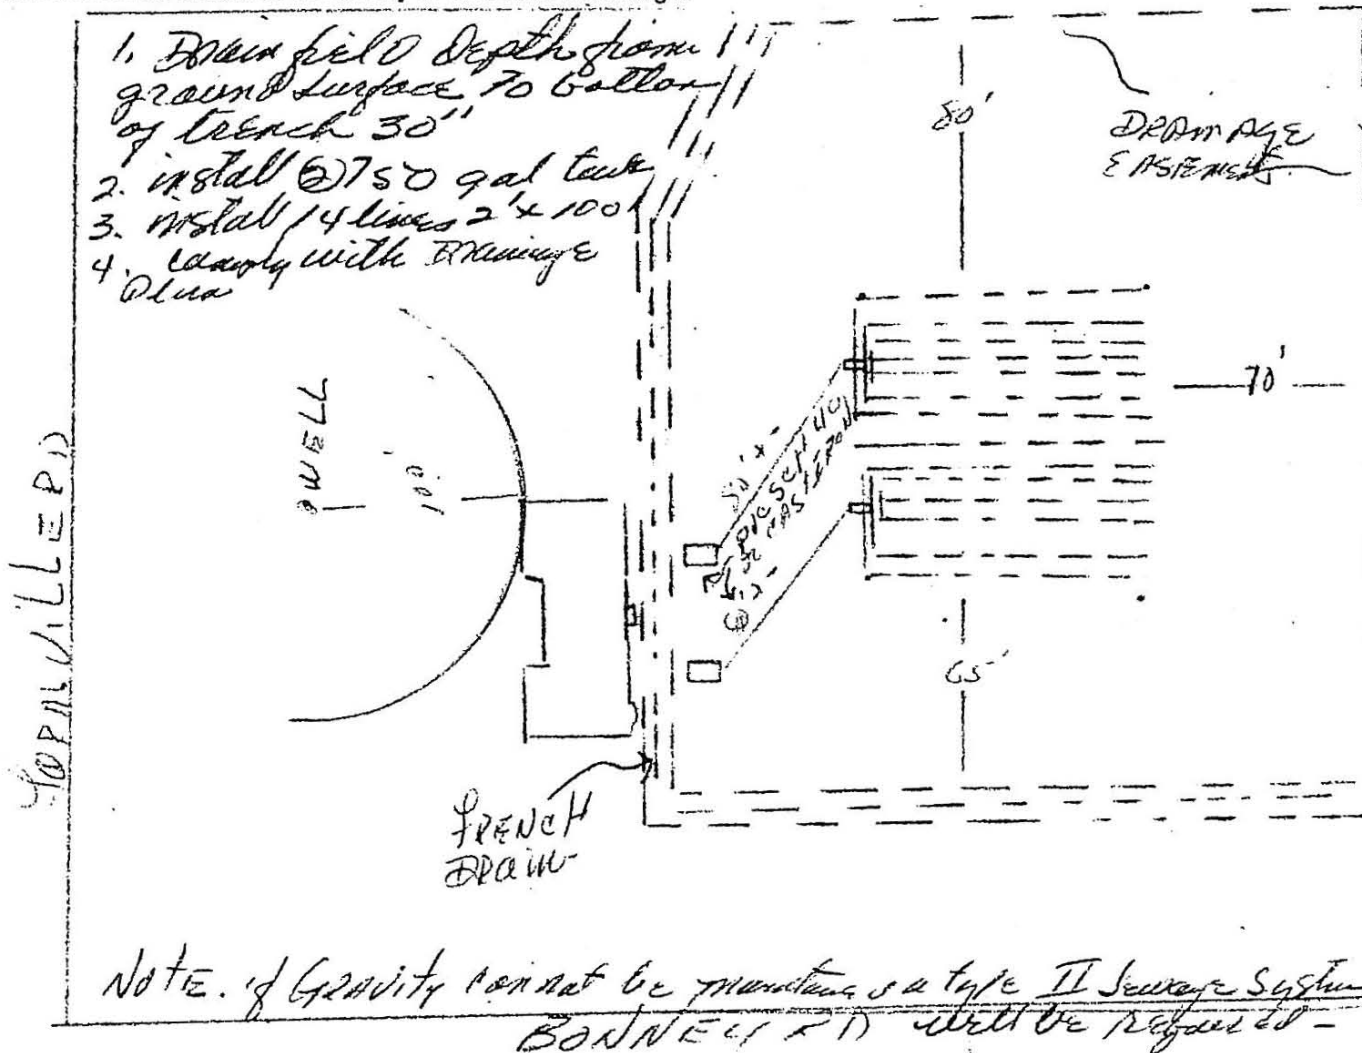 1. Drainfield Depth from
ground surface to bottom
of trench 30"
2. install ② 750 gal tank
3. install 14 lines 2' x 100'
4. comply with Drainage
Plan
80'
DRAINAGE
EASEMENT
70'
WELL
100'
50' x
PVC SCH 40
OR CAST IRON
65'
FRENCH
DRAIN
NOTE. if Gravity cannot be a type II Sewage System
BONNEY RD will be required -